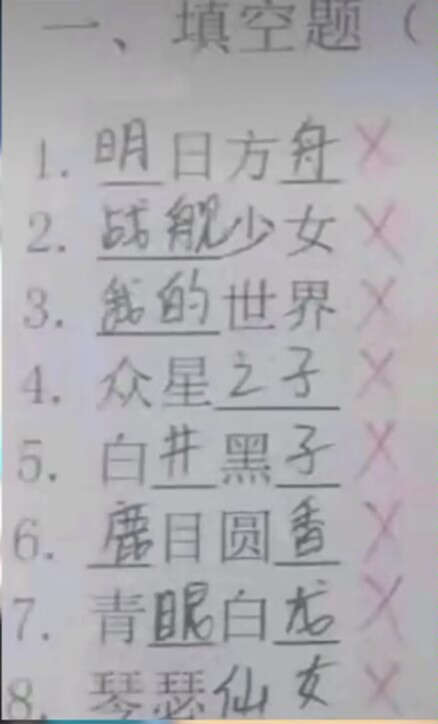 一、填空题（
1. 明日方舟
2. 战舰少女
3. 我的世界
4. 众星之子
5. 白井黑子
6. 鹿目圆香
7. 青眼白龙
8. 琴瑟仙女